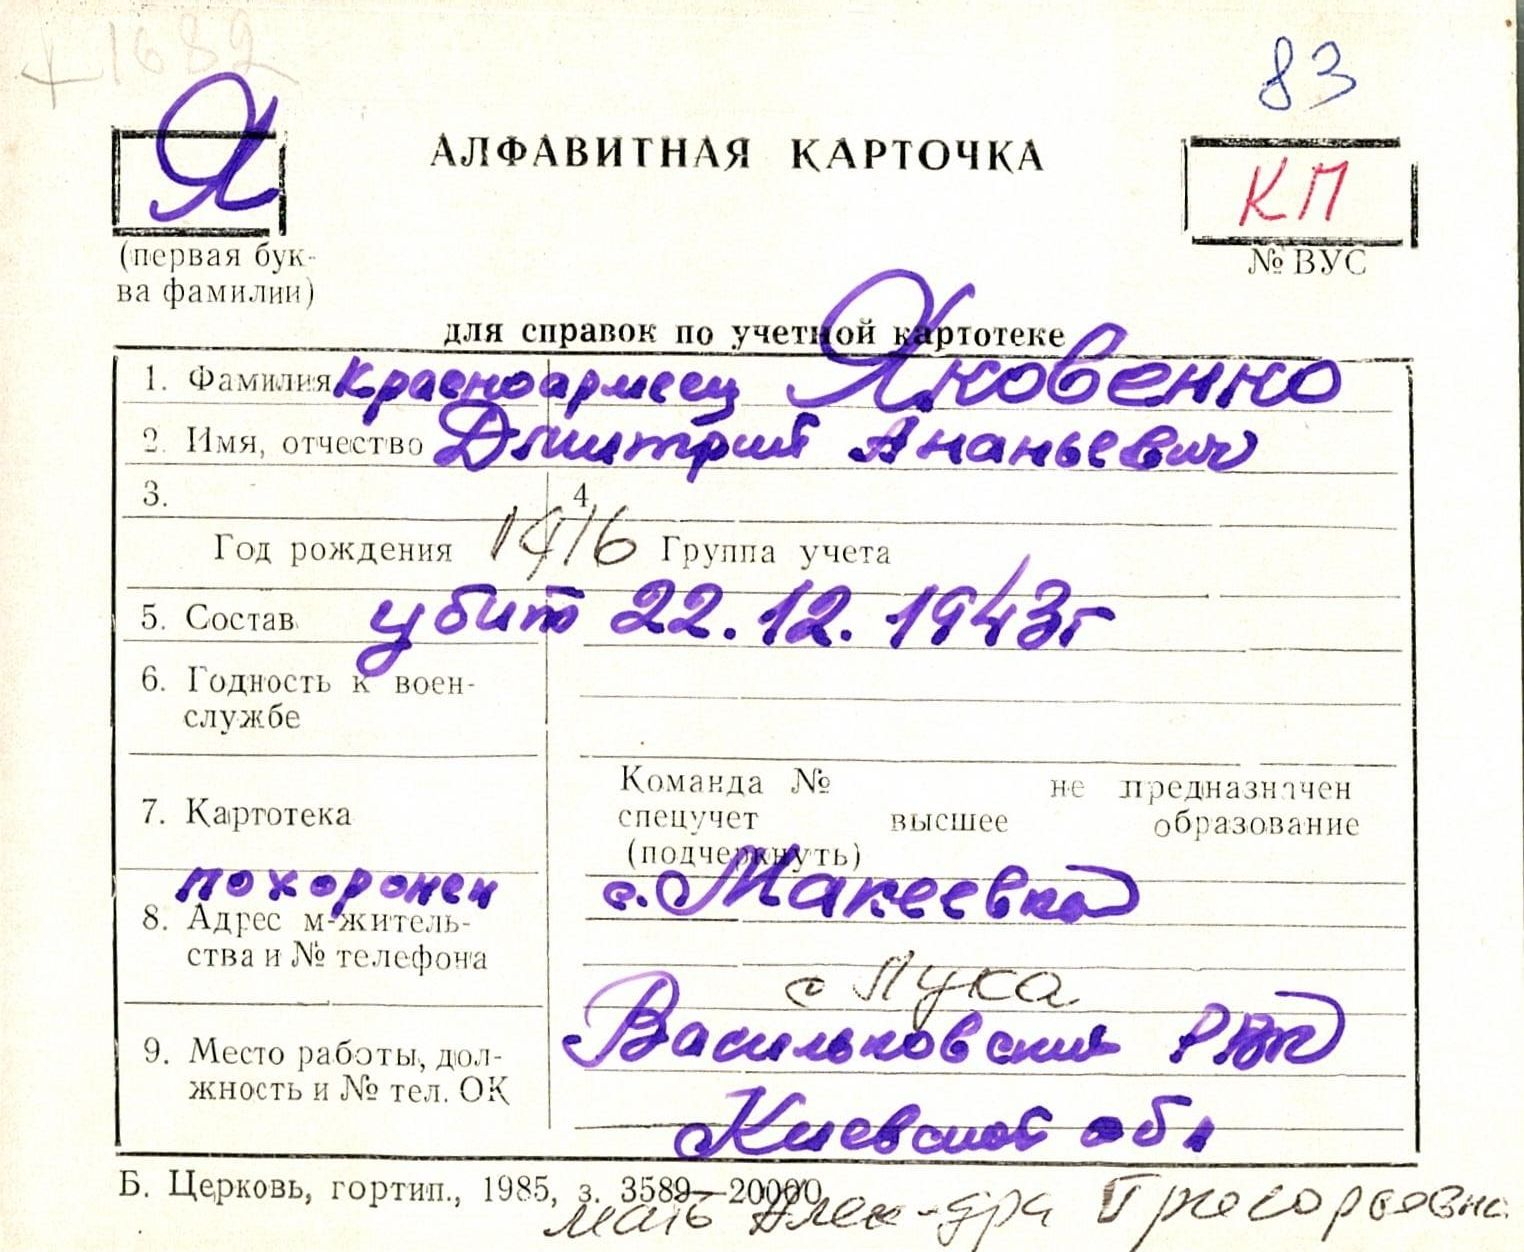 1682
83
Я
АЛФАВИТНАЯ КАРТОЧКА
КП
(первая бук-
ва фамилии)
№ ВУС
для справок по учетной картотеке
1. Фамилия Красноармеец Яковенко
2. Имя, отчество Дмитрий Ананьевич
3. 4
Год рождения 1916 Группа учета
5. Состав убит 22.12.1943г
6. Годность к воен-
службе
7. Картотека
Команда № не предназначен
спецучет высшее образование
(подчеркнуть)
похоронен с. Макеевка
8. Адрес м-житель-
ства и № телефона
с Лука
Васильковский РВК
9. Место работы, дол-
жность и № тел. ОК
Киевской обл
Б. Церковь, гортип., 1985, з. 3589—20000
мать Алек-дра Григорьевна